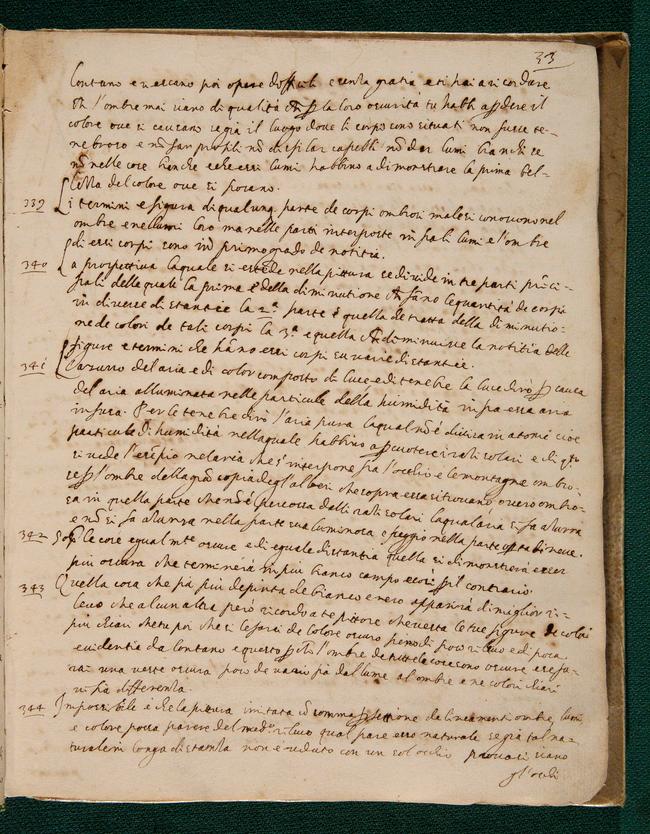 33
lontano e mancano poi opere difficili e senza gratia e ti hai a ricordare
ch l'ombre mai siano di qualità ch p la loro oscurita tu habbi a pdere il
colore ove si causano se già il luogo dove li corpi sono situati non fusse te=
nebroso e nō far profili nō disfilar capelli nō dar lumi bianchi se
nō nelle cose bianche e che essi lumi habbino a dimostrare la prima bel=
lezza del colore ove si posano.
339 I termini e figura di qualunq parte de corpi ombrosi male si conoscono nel
ombre e nelli lumi loro ma nelle parti interposte in fra li lumi e l'ombre
di essi corpi sono in primo grado de notitia.
340 La prospettiva laquale si estēde nella pittura se divide in tre parti prīci=
pali delle quale la prima è della diminutione ch fāno le quantità de corpi
in diverse distantie la 2.a parte è quella che tratta della diminutio=
ne de colori de tali corpi la 3.a e quella ch diminuisce la notitia delle
figure e termini che hāno essi corpi in varie distantie.
341 L'azurro del aria e di color composto di luce e di tenebre la luce dirò p causa
del aria alluminata nelle particule della humidità infra essa aria
infusa. Per le tenebre dirò l'aria pura laqual nō è divisa in atomi cioe
particule di humidità nellaquale habbino a pcuotere i razi solari e di q.to
si vede l'esēpio nel aria che s'interpone fra l'occhio e le montagne ombro=
se p l'ombre della grā copia degl'alberi che sopra essa si trovano overo ombro=
sa in quella parte che nō è percossa dalli razi solari laqual aria si fa azurra
e nō si fa azurra nella parte sua luminosa e peggio nella parte copta di neve.
342 Fra le cose egualm.te oscure e di eguale distantia quella si dimostrerà esser
più oscura che terminerà in più bianco campo e così p il contrario.
343 Quella cosa che fia più depinta de bianco e nero apparirà di miglior ri=
levo che alcun altra però ricordo a te pittore che vesta le tue figure de colori
più chiari che tu poi che se le farai de colore oscuro fieno di poco rilevo e di poca
evidentia da lontano e questo p ch l'ombre de tutte le cose sono oscure e se fa=
rai una veste oscura poco de vario fia dal lume al ombre e ne colori chiari
vi fia differentia.
344 Impossibile è che la pittura imitata cō somma pfettione da lineamenti ombre, lumi
e colore possa parere del med.o rilevo qual pare esso naturale se già tal na=
turale in longa distantia non è veduto con un sol occhio provasi siano
gl'occhi